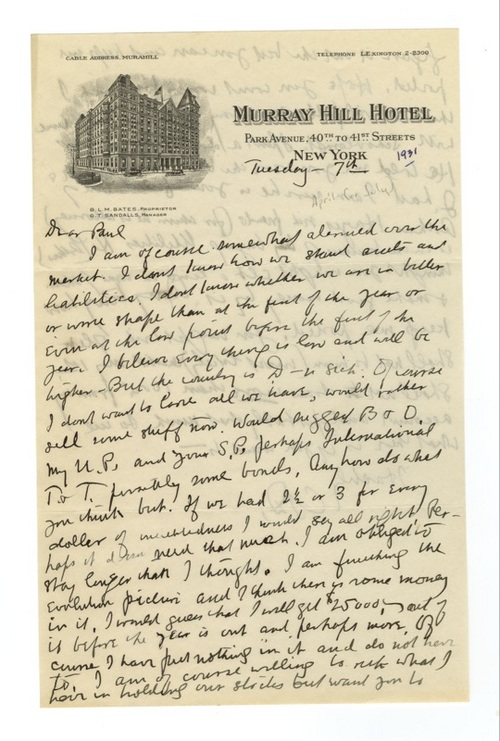 CABLE ADDRESS, MURAHILL
TELEPHONE LEXINGTON 2-2300
MURRAY HILL HOTEL
PARK AVENUE, 40TH TO 41ST STREETS
NEW YORK
1931
Tuesday - 7th
B. L. M. BATES, PROPRIETOR
G. T. SANDALLS, MANAGER
Dear Paul
I am of course somewhat alarmed over the
market. I don't know how we stand assets and
liabilities. I don't know whether we are in better
or worse shape than at the first of the year or
even at the low point before the first of the
year. I believe everything is low and will be
higher - But the country is D-n sick. Of course
I don't want to lose all we have, would rather
sell some stuff now. Would suggest B & O.
my U.P. and your S.P. perhaps International
T & T. possibly some bonds. Anyhow do what
you think best. If we had 2½ or 3 for every
dollar of indebtedness I would say all right. Per-
haps it does need that much. I am obliged to
stay longer than I thought. I am finishing the
Evolution picture and I think there is some money
in it. I would guess that I will get $25000 out of
it before the year is out and perhaps more. Of
course I have put nothing in it and do not have
to. I am of course willing to risk what I
have in holding our stocks but want you to